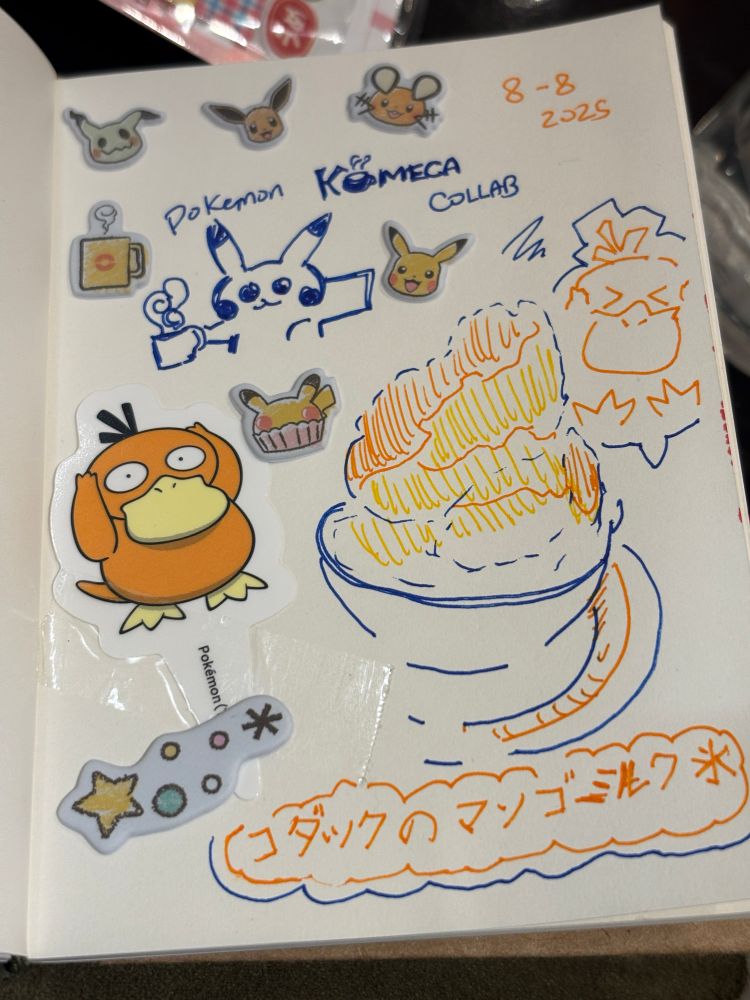 8-8
2025
Pokemon KOMECA
COLLAB
Pokémon
コダックのマンゴミルク氷